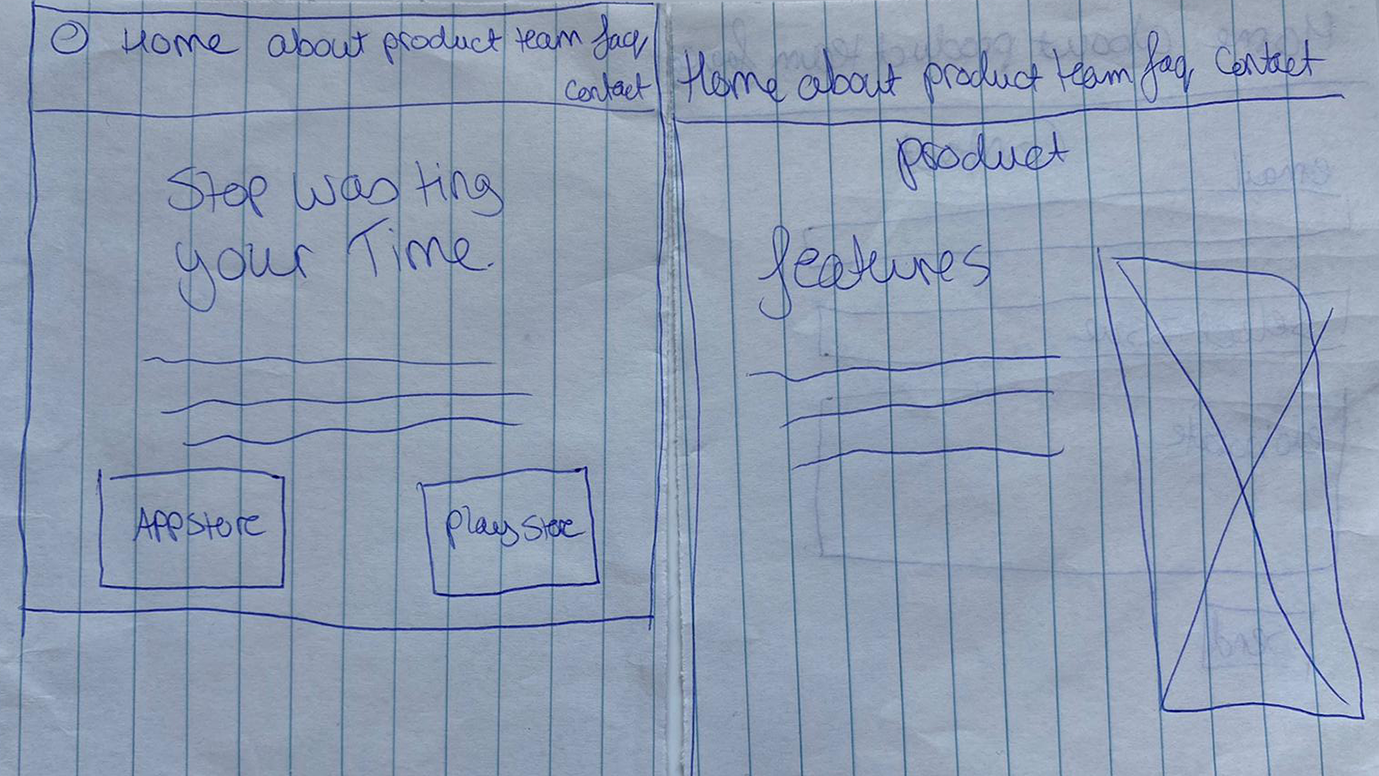 Home about product team faq
contact
Stop wasting
your Time.
Appstore
play store
Home about product team faq contact
product
features